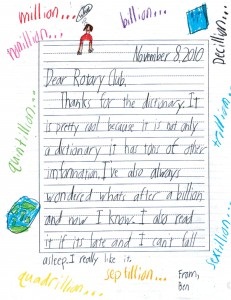 million...
billion...
nonillion...
Decillion...
November 8, 2010
Dear Rotary Club,
Thanks for the dictionary. It
is pretty cool because it is not only
a dictionary it has tons of other
imformation. I've also always
wondered whats after a billion
and now I know. I also read
it if its late and I can't fall
asleep. I really like it.
From,
Ben
quintillion...
trillion...
sexillion...
septillion...
quadrillion...